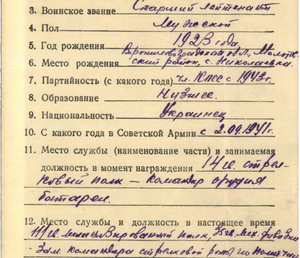 3. Воинское звание Старший лейтенант
4. Пол мужской
5. Год рождения 1923 года
Ворошиловградской
6. Место рождения ский район, с. Николаевка
7. Партийность (с какого года) чл. КПСС с 1942 г.
8. Образование Низшее
9. Национальность Украинец
10. С какого года в Советской Армии с 2.09.1941 г.
11. Место службы (наименование части) и занимаемая
должность в момент награждения 14 
ковый полк – командир орудия
батареи.
12. Место службы и должность в настоящее время
механизированный полк,
Зам. командира стрелковой роты по